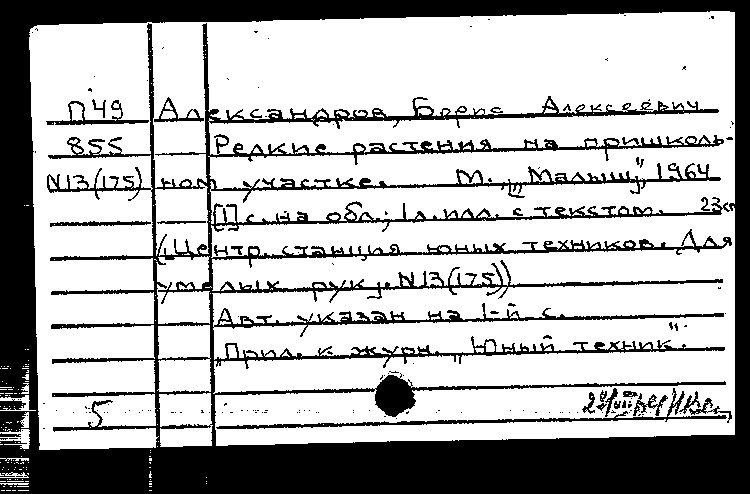 П49 Александров, Борис Алексеевич
855 Редкие растения на пришколь-
N13(175) ном участке. М., „Малыш", 1964
[1] с. на обл.; 1 л. илл. с текстом. 23см
(Центр. станция юных техников. Для
умелых рук; N13(175))
Авт. указан на 1-й с.
„Прил. к журн. „Юный техник".
5